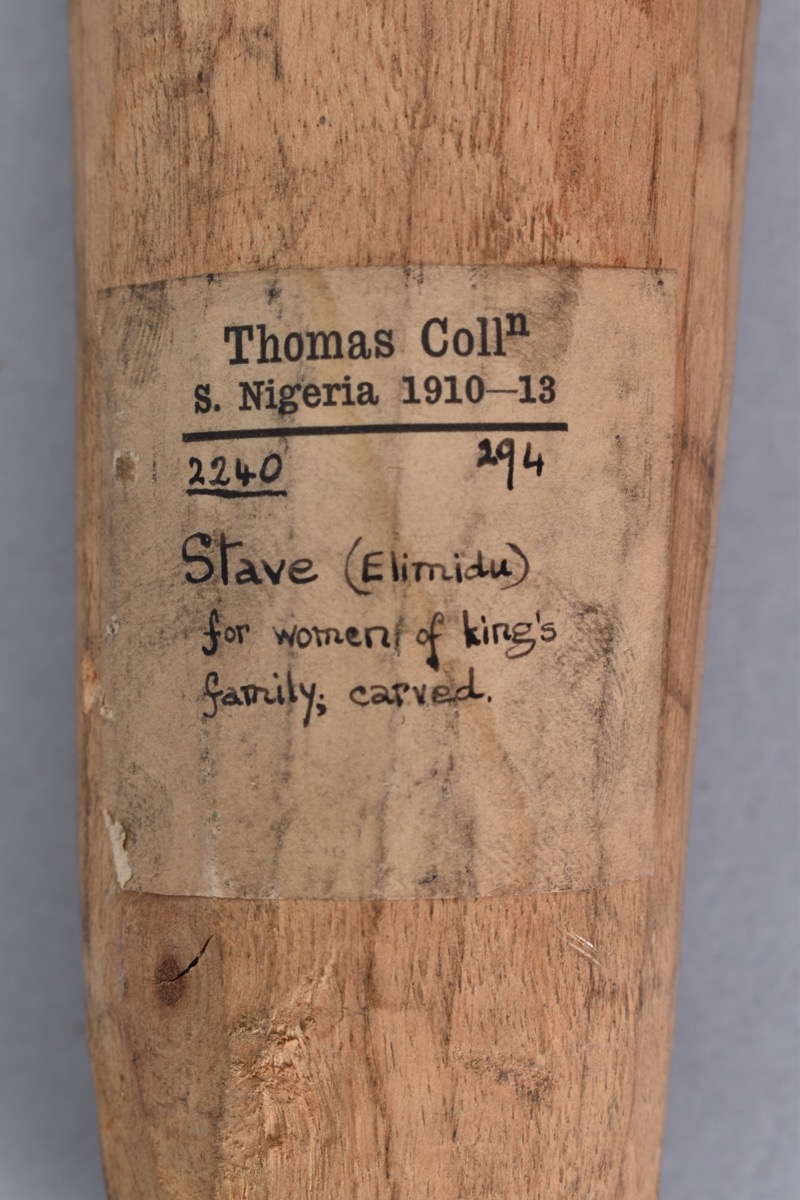 Thomas Collⁿ
S. Nigeria 1910—13
2240 294
Stave (Elimidu)
for women of king's
family; carved.